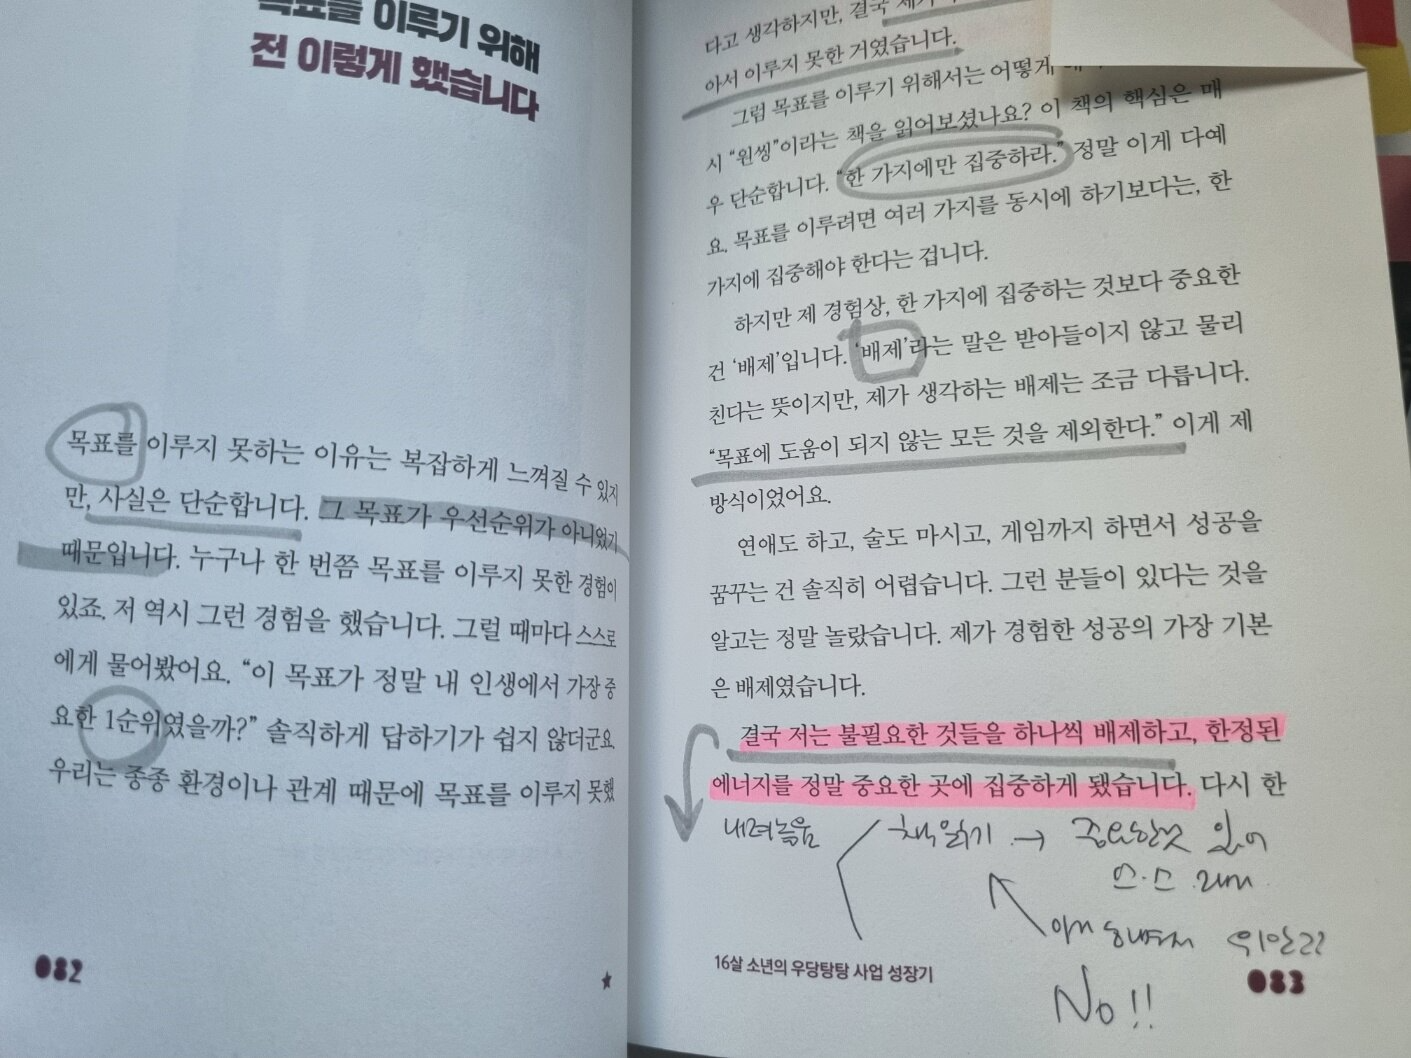 목표를 이루기 위해
전 이렇게 했습니다
목표를 이루지 못하는 이유는 복잡하게 느껴질 수 있지
만, 사실은 단순합니다. 그 목표가 우선순위가 아니었기
때문입니다. 누구나 한 번쯤 목표를 이루지 못한 경험이
있죠. 저 역시 그런 경험을 했습니다. 그럴 때마다 스스로
에게 물어봤어요. “이 목표가 정말 내 인생에서 가장 중
요한 1순위였을까?” 솔직하게 답하기가 쉽지 않더군요.
우리는 종종 환경이나 관계 때문에 목표를 이루지 못했
082
다고 생각하지만, 결국 제가
아서 이루지 못한 거였습니다.
그럼 목표를 이루기 위해서는 어떻게
시 “원씽”이라는 책을 읽어보셨나요? 이 책의 핵심은 매
우 단순합니다. “한 가지에만 집중하라.” 정말 이게 다예
요. 목표를 이루려면 여러 가지를 동시에 하기보다는, 한
가지에 집중해야 한다는 겁니다.
하지만 제 경험상, 한 가지에 집중하는 것보다 중요한
건 ‘배제’입니다. ‘배제’라는 말은 받아들이지 않고 물리
친다는 뜻이지만, 제가 생각하는 배제는 조금 다릅니다.
“목표에 도움이 되지 않는 모든 것을 제외한다.” 이게 제
방식이었어요.
연애도 하고, 술도 마시고, 게임까지 하면서 성공을
꿈꾸는 건 솔직히 어렵습니다. 그런 분들이 있다는 것을
알고는 정말 놀랐습니다. 제가 경험한 성공의 가장 기본
은 배제였습니다.
결국 저는 불필요한 것들을 하나씩 배제하고, 한정된
에너지를 정말 중요한 곳에 집중하게 됐습니다. 다시 한
내려놓음
책 읽기 → 중요한 것
No!!
16살 소년의 우당탕탕 사업 성장기
083